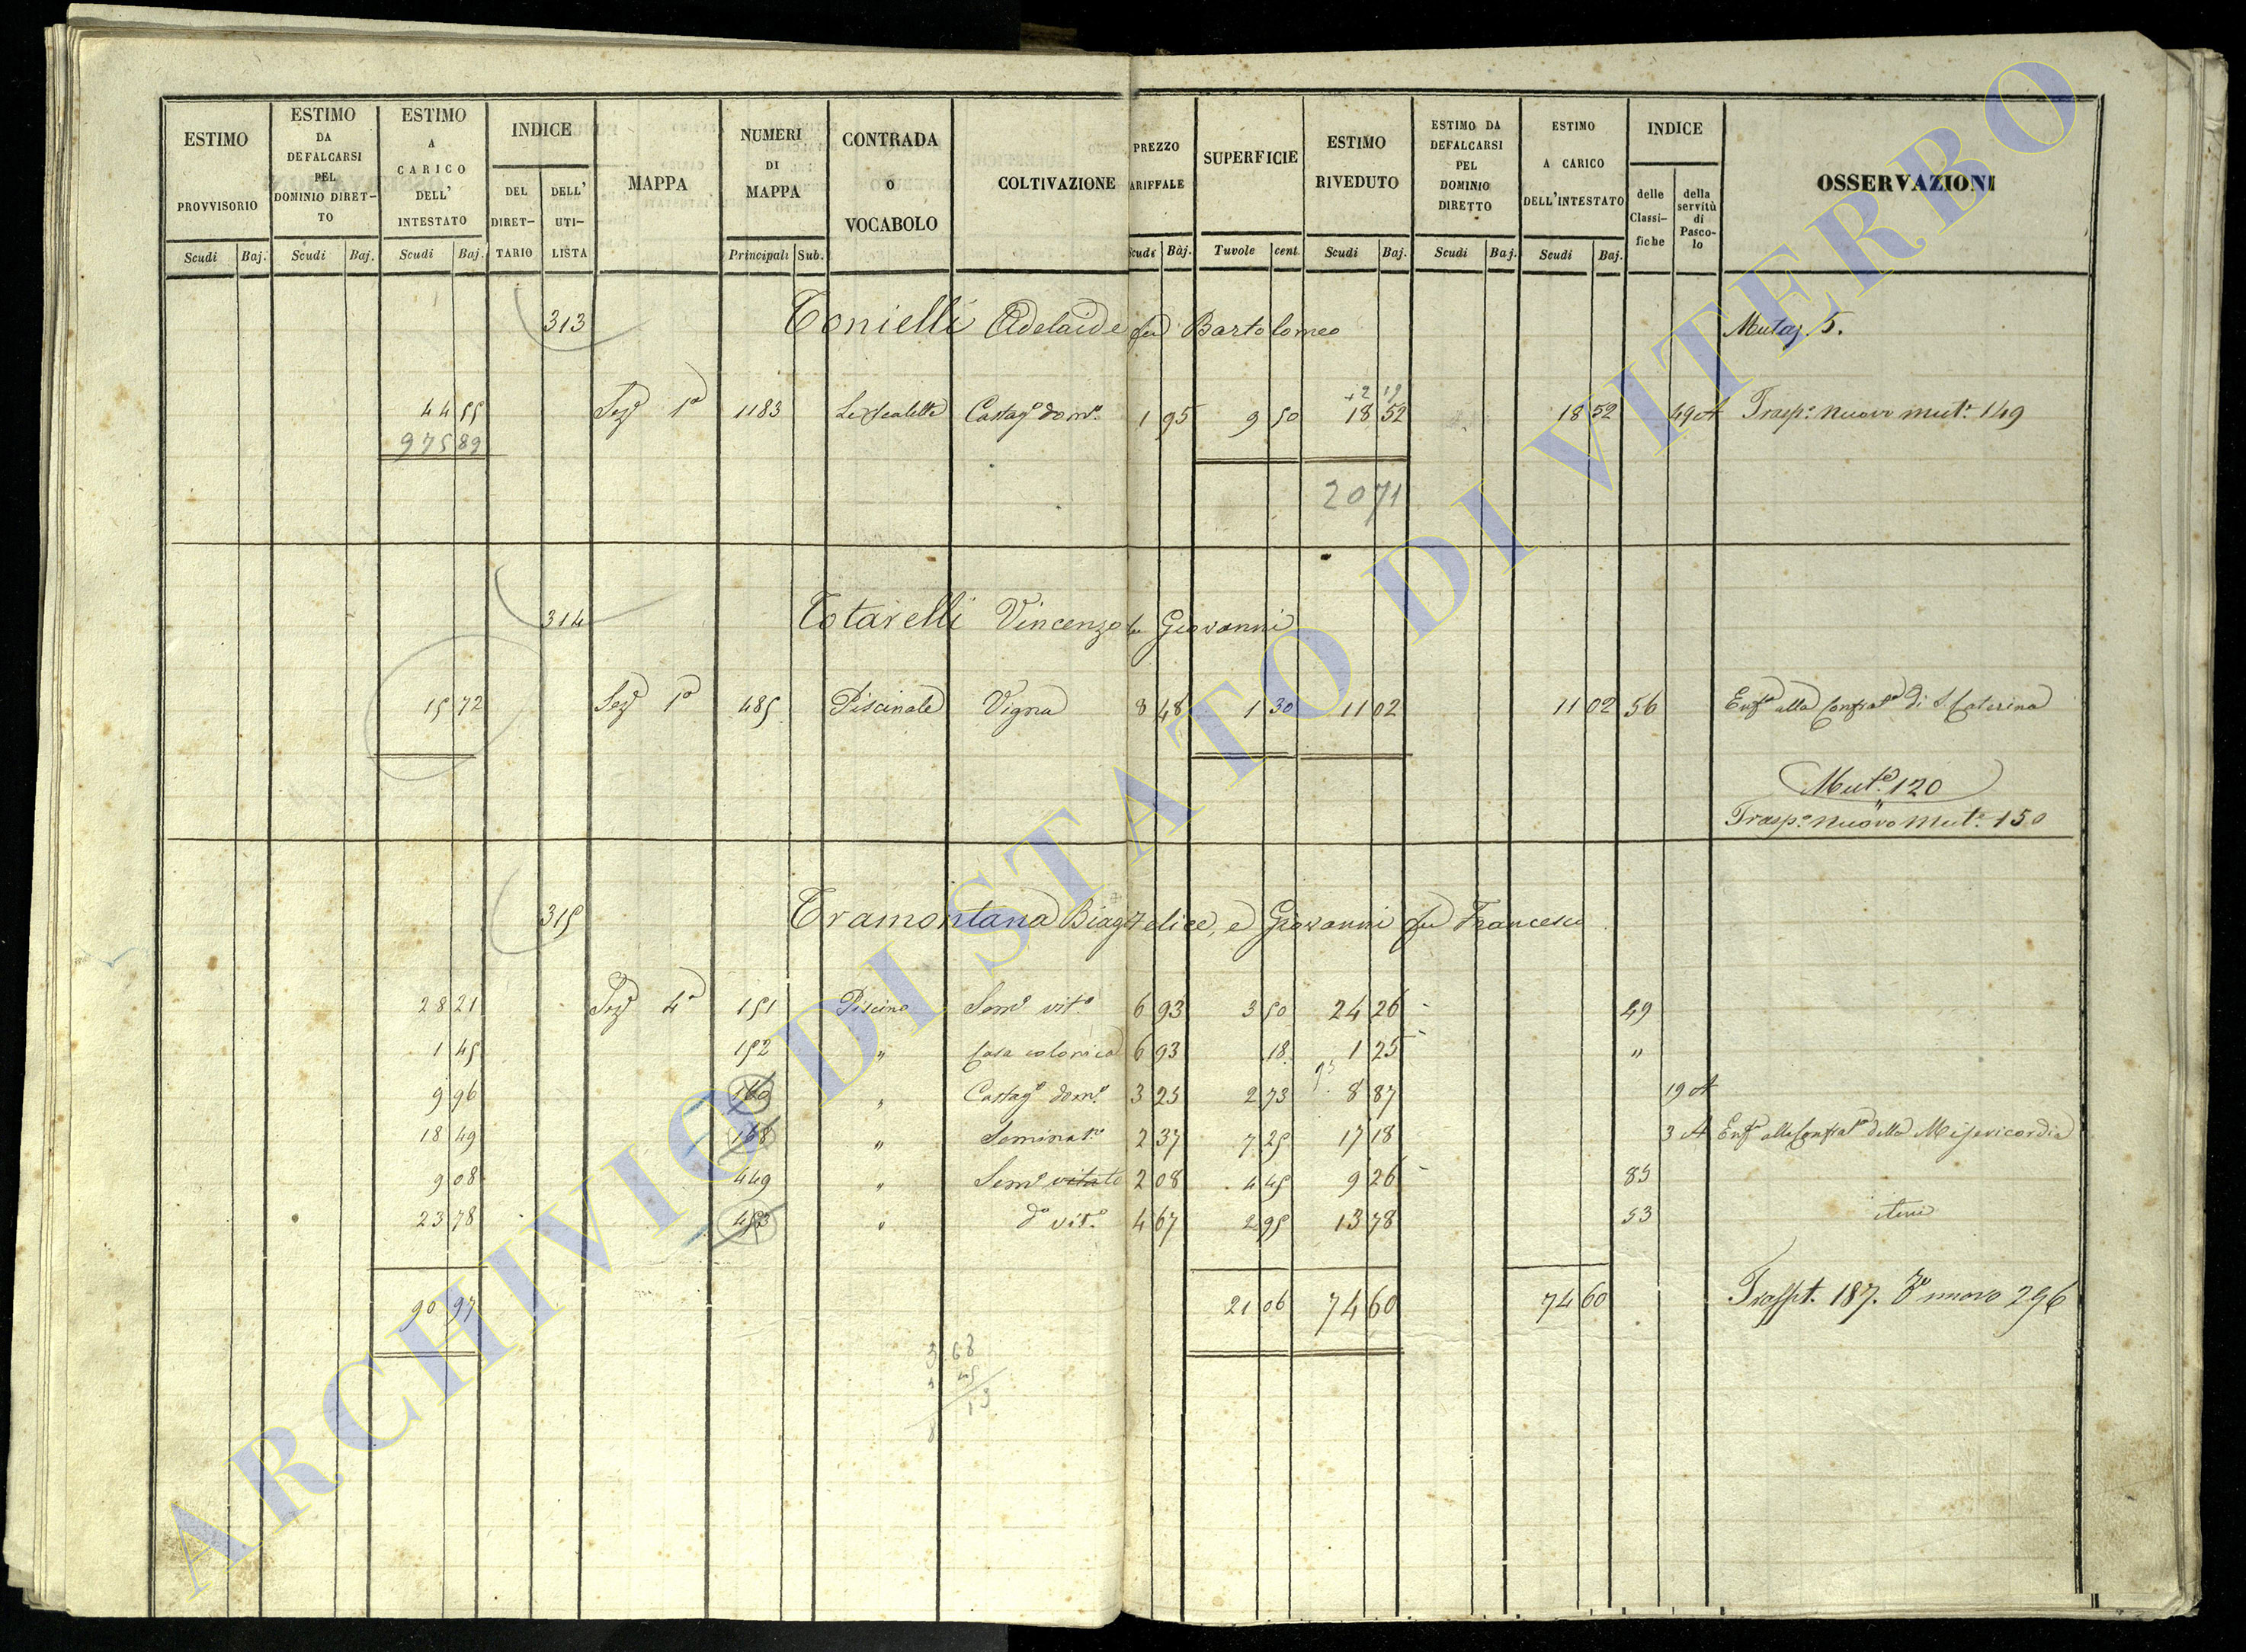 ESTIMO PROVVISORIO Scudi Baj.
ESTIMO DA DEFALCARSI PEL DOMINIO DIRET-TO Scudi Baj.
ESTIMO A CARICO DELL' INTESTATO Scudi Baj.
INDICE DEL DIRET-TARIO DELL' UTI-LISTA
MAPPA
NUMERI DI MAPPA Principali Sub.
CONTRADA O VOCABOLO
COLTIVAZIONE
PREZZO ARIFFALE Scudi Baj.
SUPERFICIE Tuvole cent.
ESTIMO RIVEDUTO Scudi Baj.
ESTIMO DA DEFALCARSI PEL DOMINIO DIRETTO Scudi Baj.
ESTIMO A CARICO DELL'INTESTATO Scudi Baj.
INDICE delle Classi-fiche della servitù di Pasco-lo
OSSERVAZIONI
313 Tonielli Adelaide fu Bartolomeo Mutaz. 5.
+2 19
44 55 Sezᵉ 1ª 1183 Castagº domº 1 95 9 50 18 52 18 52 49 A Traspº nuovo mutª 149
975 89
20 71
314 Totarelli Vincenzo fu Giovanni
15 72 Sezᵉ 1ª 485 Piscinale Vigna 8 48 1 30 11 02 11 02 56 Enfª alla Confratª di S. Caterina
Mutª 120
Traspº nuovo mutª 150
315 Tramontana Biagio Felice, e Giovanni fu Francesco
28 21 Sezᵉ 4ª 151 Piscino Semº vitº 6 93 3 50 24 26 49
1 45 152 " Casa colonica 6 93 18 1 25 "
9 96 160 " Castagº domº 3 25 2 73 8 87 19 A
18 49 168 " Seminatº 2 37 7 25 17 18 3 A Enfª alla Confratª della Misericordia
9 08 449 " Semº vitato 2 08 4 45 9 26 85
23 78 453 " dº vitº 4 67 2 95 13 78 53
90 97 21 06 74 60 74 60 Traspt. 187. nuovo 296
3 68
45
8 13
ARCHIVIO DI STATO DI VITERBO